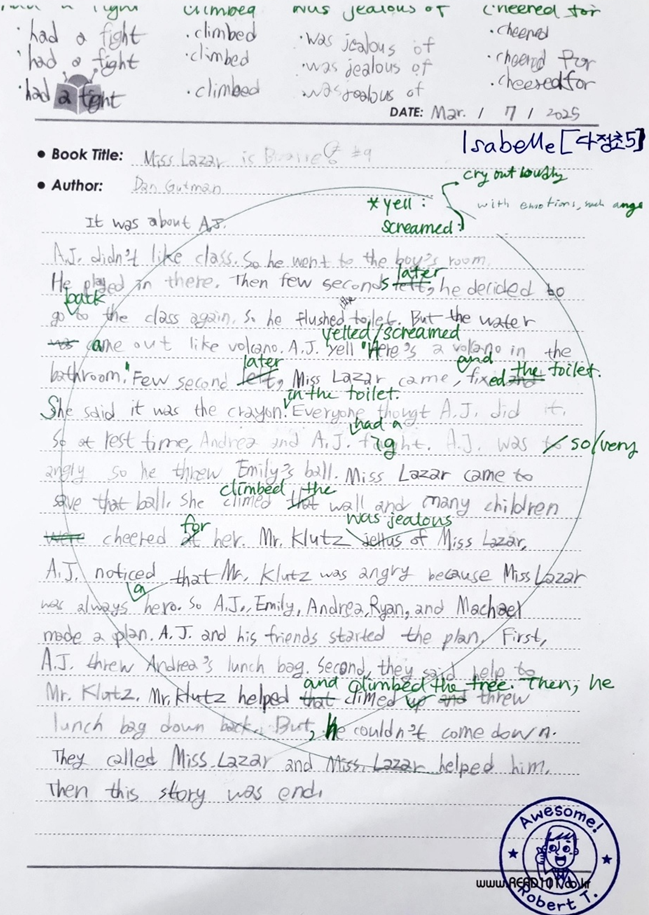 had a fight climbed was jealous of cheered for
· had a fight · climbed · was jealous of · cheered
· had a fight · climbed · was jealous of · cheered for
· had a fight · climbed · was jealous of · cheered for
DATE: Mar. / 7 / 2025
Isabelle [다정초5]
• Book Title: Miss Lazar is #9
cry out loudly
• Author: Dan Gutman
* yell : with emotions, such
screamed :
It was about A.J.
A.J. didn't like class. So he went to the boy's room.
later
He played in there. Then few seconds left, he decided to
back
go to the class again. So he flushed toilet. But the water
yelled/screamed
came out like volcano. A.J. yell "Here's a volcano in the
later and the toilet.
bathroom." Few second left, Miss Lazar came, fixed and
in the toilet.
She said it was the crayon. Everyone thougt A.J. did it.
had a
So at rest time, Andrea and A.J. fight. A.J. was to so/very
angry so he threw Emily's ball. Miss Lazar came to
climbed the
save that ball. She climed that wall and many children
for was jealous
were cheered at her. Mr. Klutz jellus of Miss Lazar,
A.J. noticed that Mr. Klutz was angry because Miss Lazar
a
was always hero. So A.J., Emily, Andrea, Ryan, and Machael
made a plan. A.J. and his friends started the plan. First,
A.J. threw Andrea's lunch bag. Second, they said help to
and climbed the tree. Then, he
Mr. Klutz. Mr. Klutz helped that climed up and threw
lunch bag down back. But, he couldn't come down.
They called Miss Lazar and Miss Lazar helped him.
Then this story was end.
Awesome!
www.READ101.co.kr
Robert T.